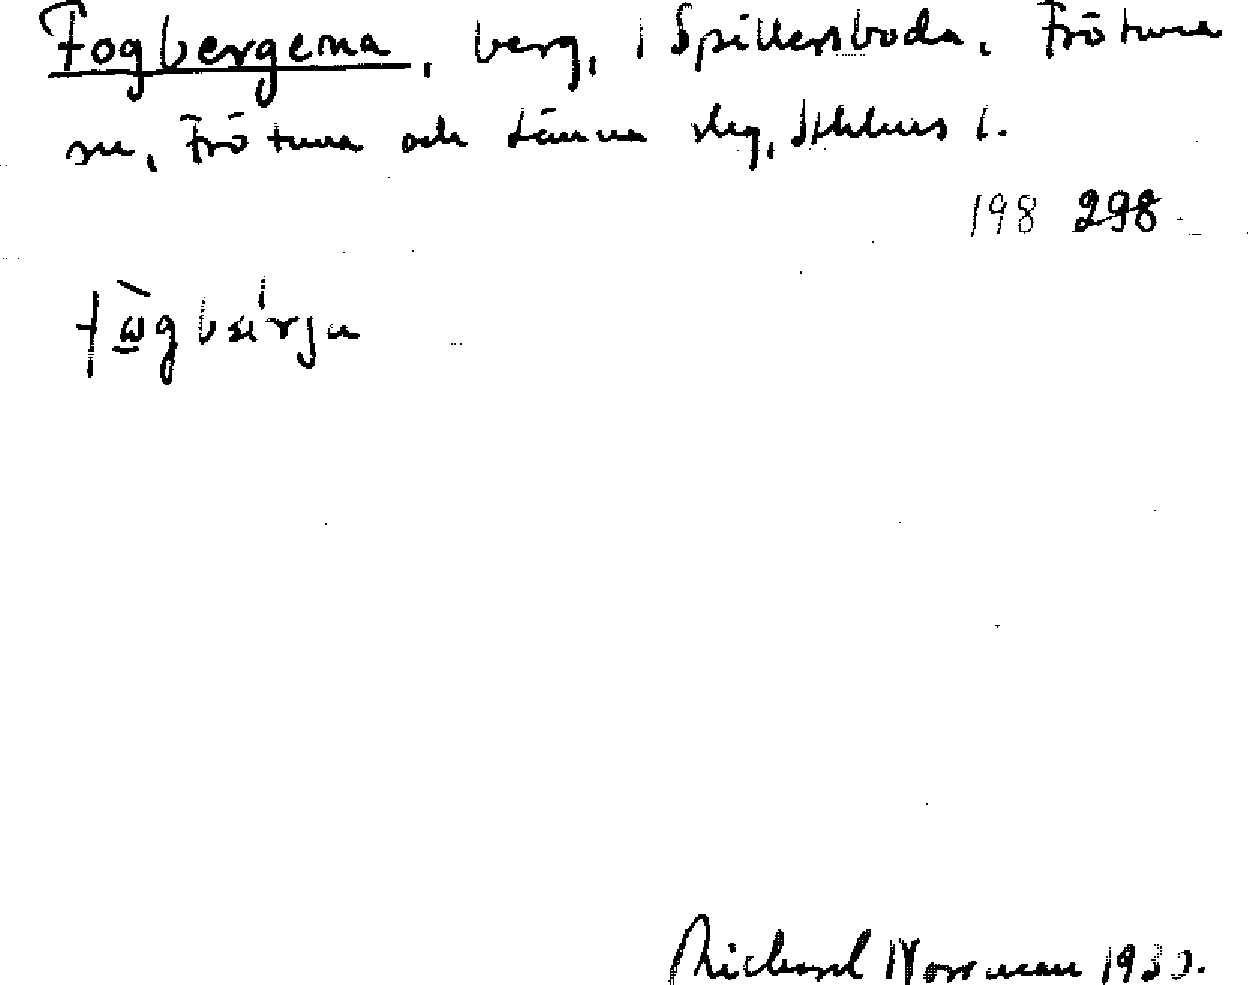 Fogbergena, berg, i Spillersboda, Frötuna
sn, Frötuna och Länna slg, Sthlms l.
198 298
Richard Norrman